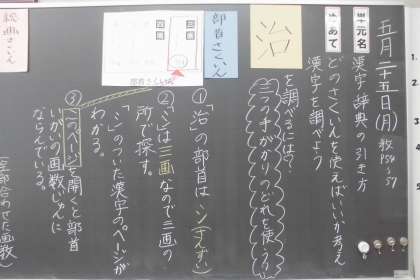 五月二十五日(月)
教P54~57
単元名
漢字辞典の引き方
めあて
どのさくいんを使えばいいか考え
漢字を調べよう
治
を調べるには?
三つの手がかりのどれを使う?
部首さくいん
①「治」の部首は 氵(さんずい)
②「氵」は三画なので三画の
所で探す。
「氵」のついた漢字のページが
わかる。
③そのページを開くと部首
いがいの画数じゅんに
ならんでいる。
総画さくいん